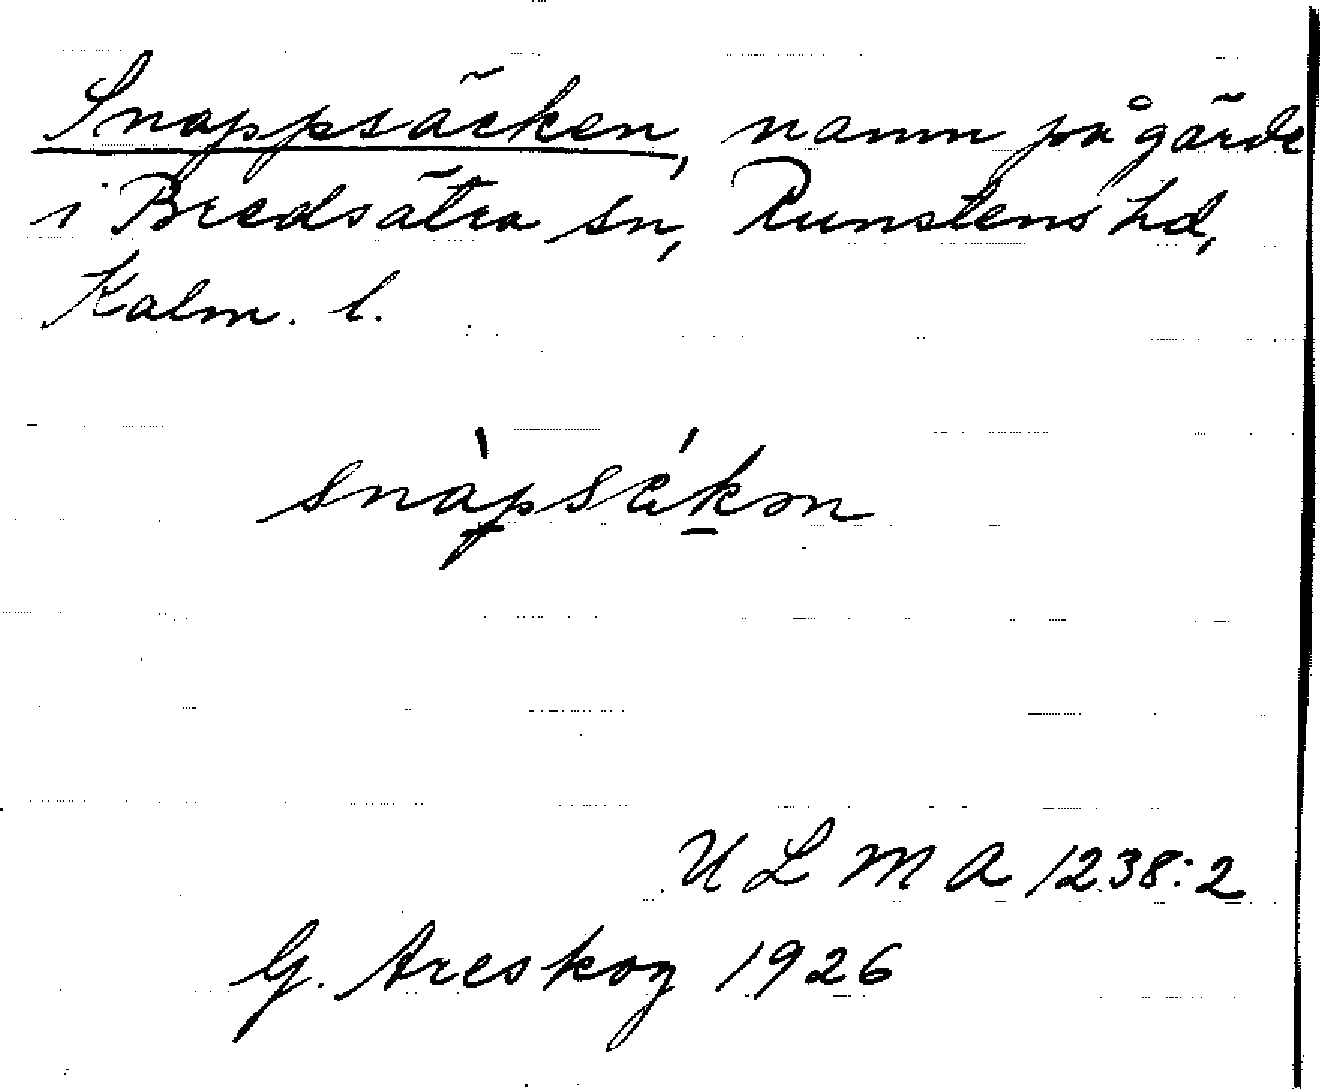 Snappsäcken, namn på gärde
i Bredsätra sn, Runstens hd,
Kalm. l.
snàpsǽkən
U L M A 1238:2
G. Areskog 1926